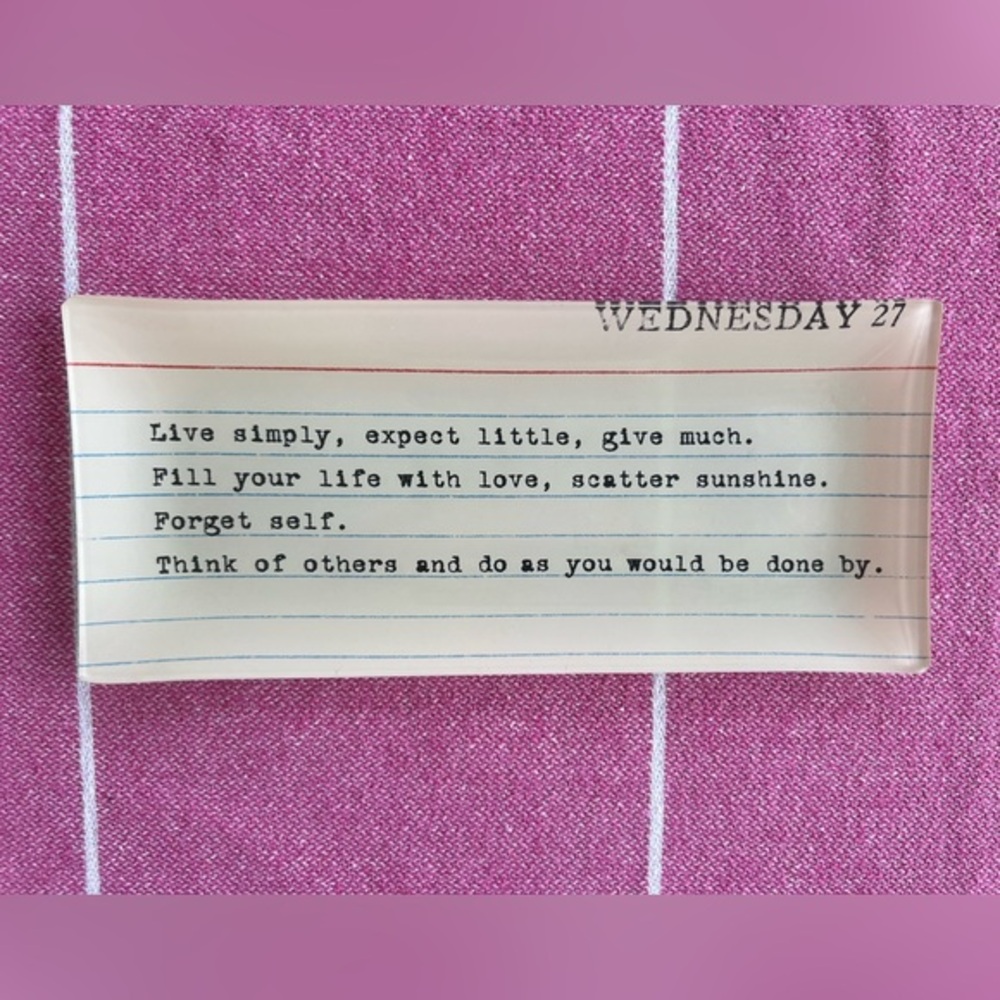 WEDNESDAY 27
Live simply, expect little, give much.
Fill your life with love, scatter sunshine.
Forget self.
Think of others and do as you would be done by.